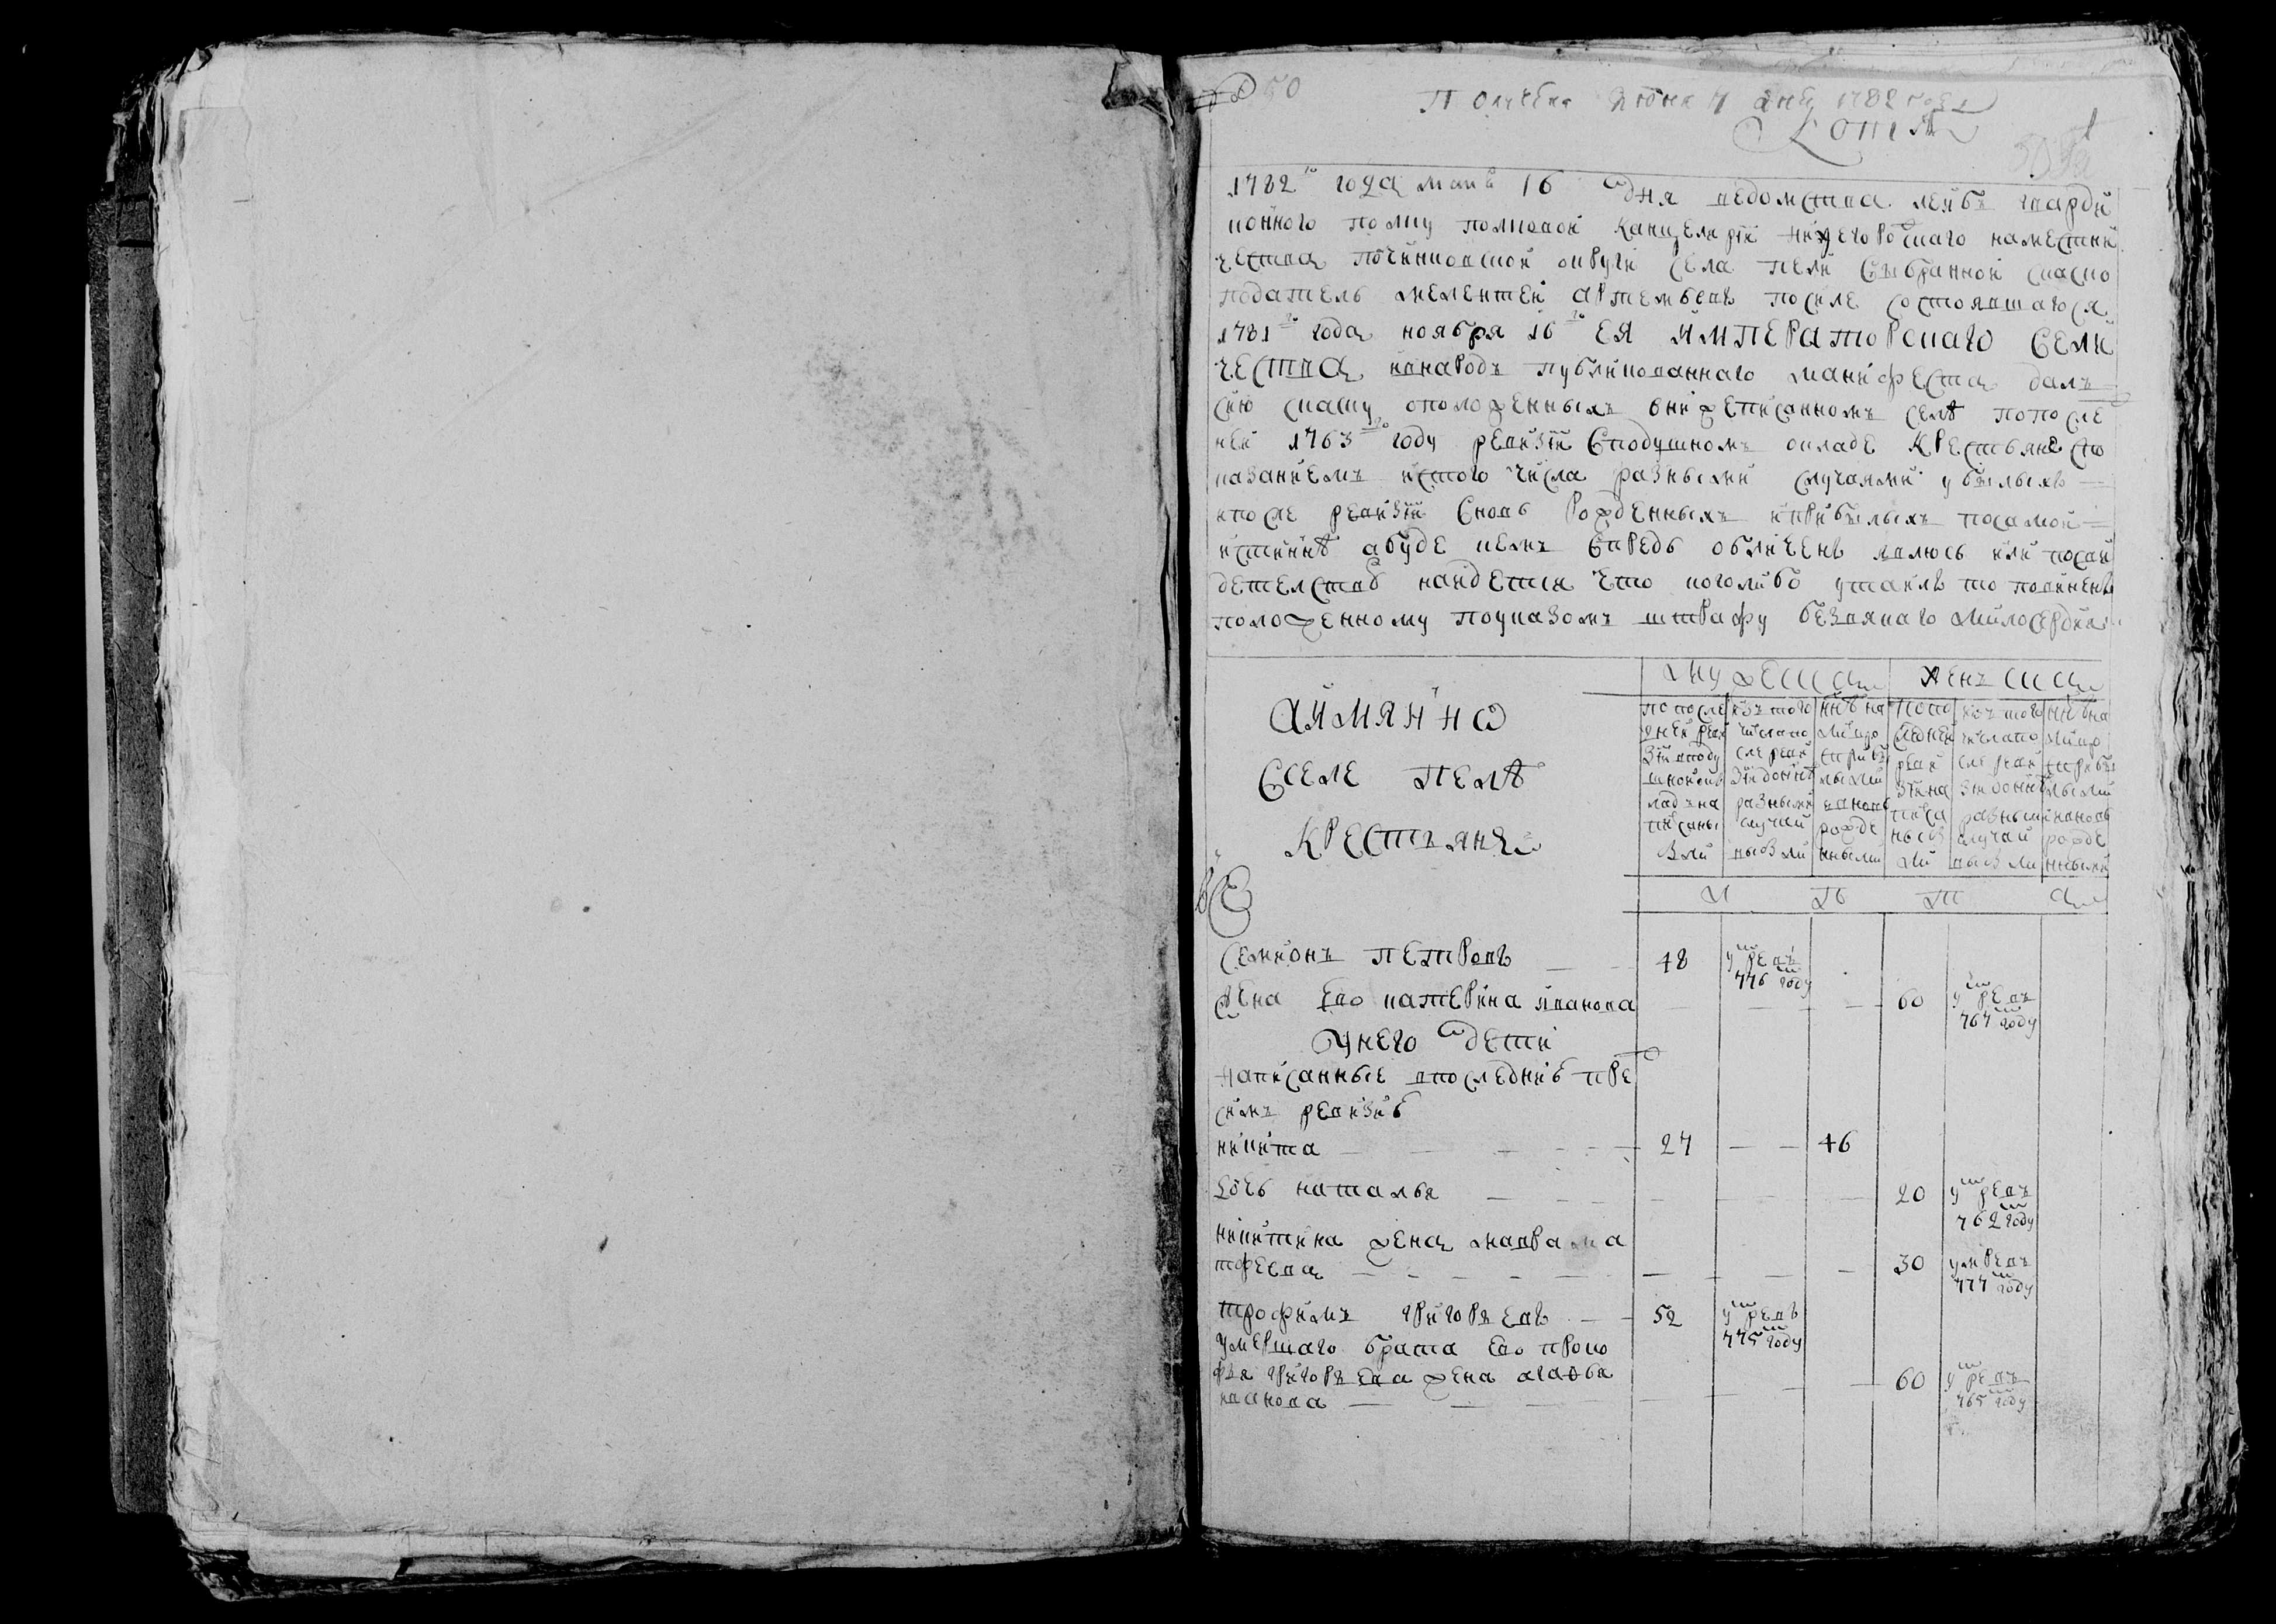 Получена июня 7 дня 1782 года
Копия
1782го года маия 16 дня ведомства лейбъ гварди
конного полку полковой канцелярии нижегороцкаго наместни
чества починковской округи села пели выбранной скаско
податель мелентей артемьевъ после состоявшагося
1781го года ноября 16го ЕЯ ИМПЕРАТОРСКАГО ВЕЛИ
ЧЕСТВА внародъ публикованнаго манифеста далъ
сию скаску оположенныхъ внижеписанномъ селѣ попосле
ней 1763го году ревизии вподушномъ окладе крестьяне спо
казаниемъ истого числа разными случаями убылыхъ
ипосле ревизии вновь рожденныхъ иприбылыхъ посамой
истиннѣ абуде кемъ впредь обличенъ явлюсь или посви
детелствъ найдется что коголибо утаилъ то повиненъ
положенному поуказомъ штрафу безвякаго милосердия
АИМЯННО
Вселе пелѣ
Крестьяне
Мужеска
Женска
попосле
дней реви
зии вподу
шной окъ
ладъ на
писаны
были
изъ того
числа по
сле реви
зии донынѣ
разными
случаи
выбыли
нынѣ на
лицо
сприбы
лыми
ивновь
рожде
нными
попо
следней
реви
зии на
писа
ны бы
ли
изъ того
числа по
сле реви
зии донынѣ
разными
случаи
выбыли
нынѣ на
лицо
сприбы
лыми
ивновь
рожде
нными
Л Ѣ Т А
Семионъ петровъ 48 умревъ 776 году
Жена ево катерина иванова 60 умревъ 767 году
Унего дети
написанные впоследнию пре
симъ ревизию
никита 27 46
Дочь наталья 20 умревъ 762 году
никитина жена мавра ма
тфевва 30 умревъ 777 году
трофимъ григорьевъ 52 умревъ 775 году
умершаго брата ево проко
фья григорьева жена агафья
иванова 60 умревъ 765 году